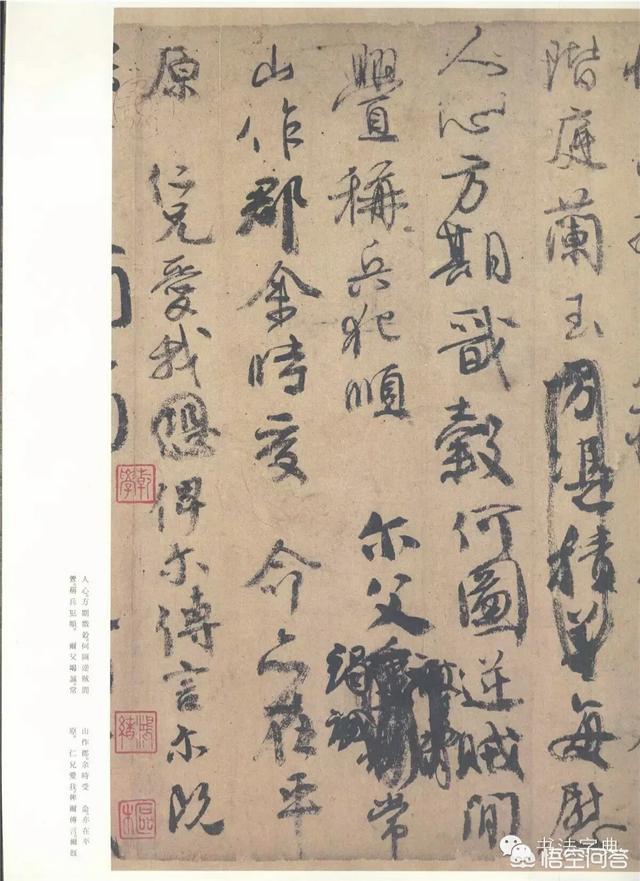 階庭蘭玉方憑積善每慰
人心方期戩穀何圖逆賊間
舋稱兵犯順 尔父竭誠常
山作郡余時受 命亦在平
原 仁兄愛我俾尔傳言尔既
人心。方期戩穀。何圖逆賊間
釁。稱兵犯順。 爾父竭誠。常
山作郡。余時受 命。亦在平
原。 仁兄愛我。俾爾傳言。爾既
书法字典
悟空问答